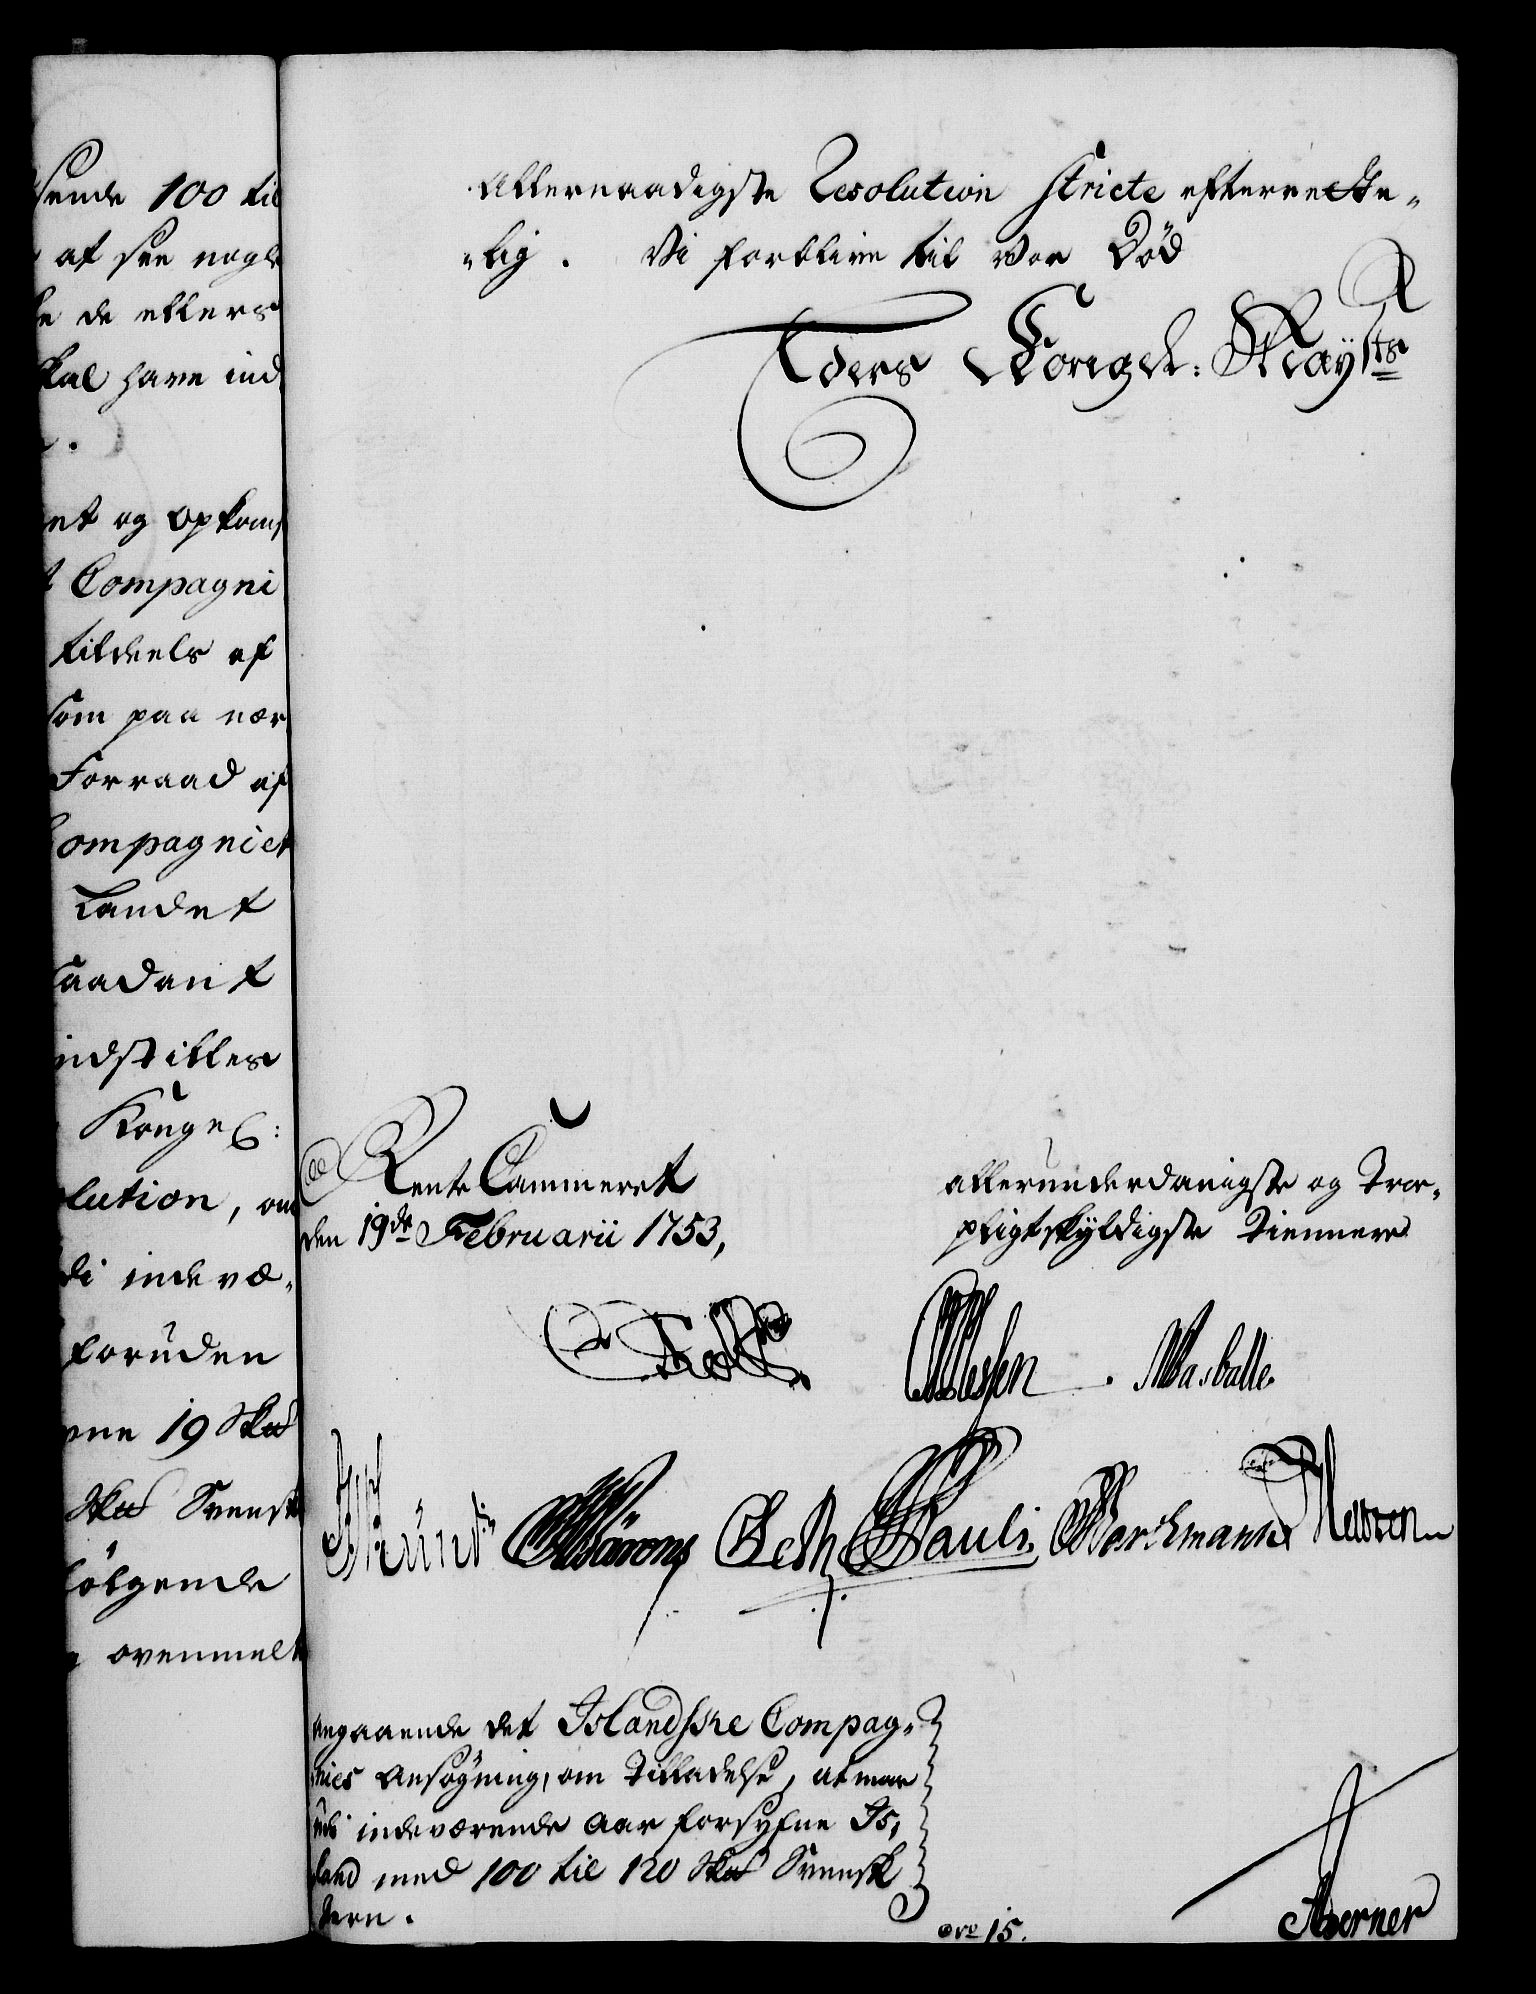 sende 100 til
at see nogle
de ellers
skal have ind
et og Opkomst
Compagni
tildeels af
som paa nær
Forraad af
Compagniet
Landet
saadant
indstilles
Kongel:
lution, om
di indevæ-
foruden
19 Sk℔
Sk℔ Svensk
følgende
ovenmelt
Allernaadigste Resolution stricte efterrette-
-lig. Vi forblive til vor Død
Eders Kongel: Mayts
Rente Cammeret
den 19de Februarii 1753,
allerunderdanigste og Troe-
pligtskyldigste Tiennere
Holst
Olessen. Masballe.
Leth Pauli Borchmann
Angaaende det Islandske Compag-
nies Ansøgning, om Tilladelse, at maa
udi indeværende Aar forsyne Is-
land med 100 til 120 Sk℔ Svensk
Jern.
No 15.